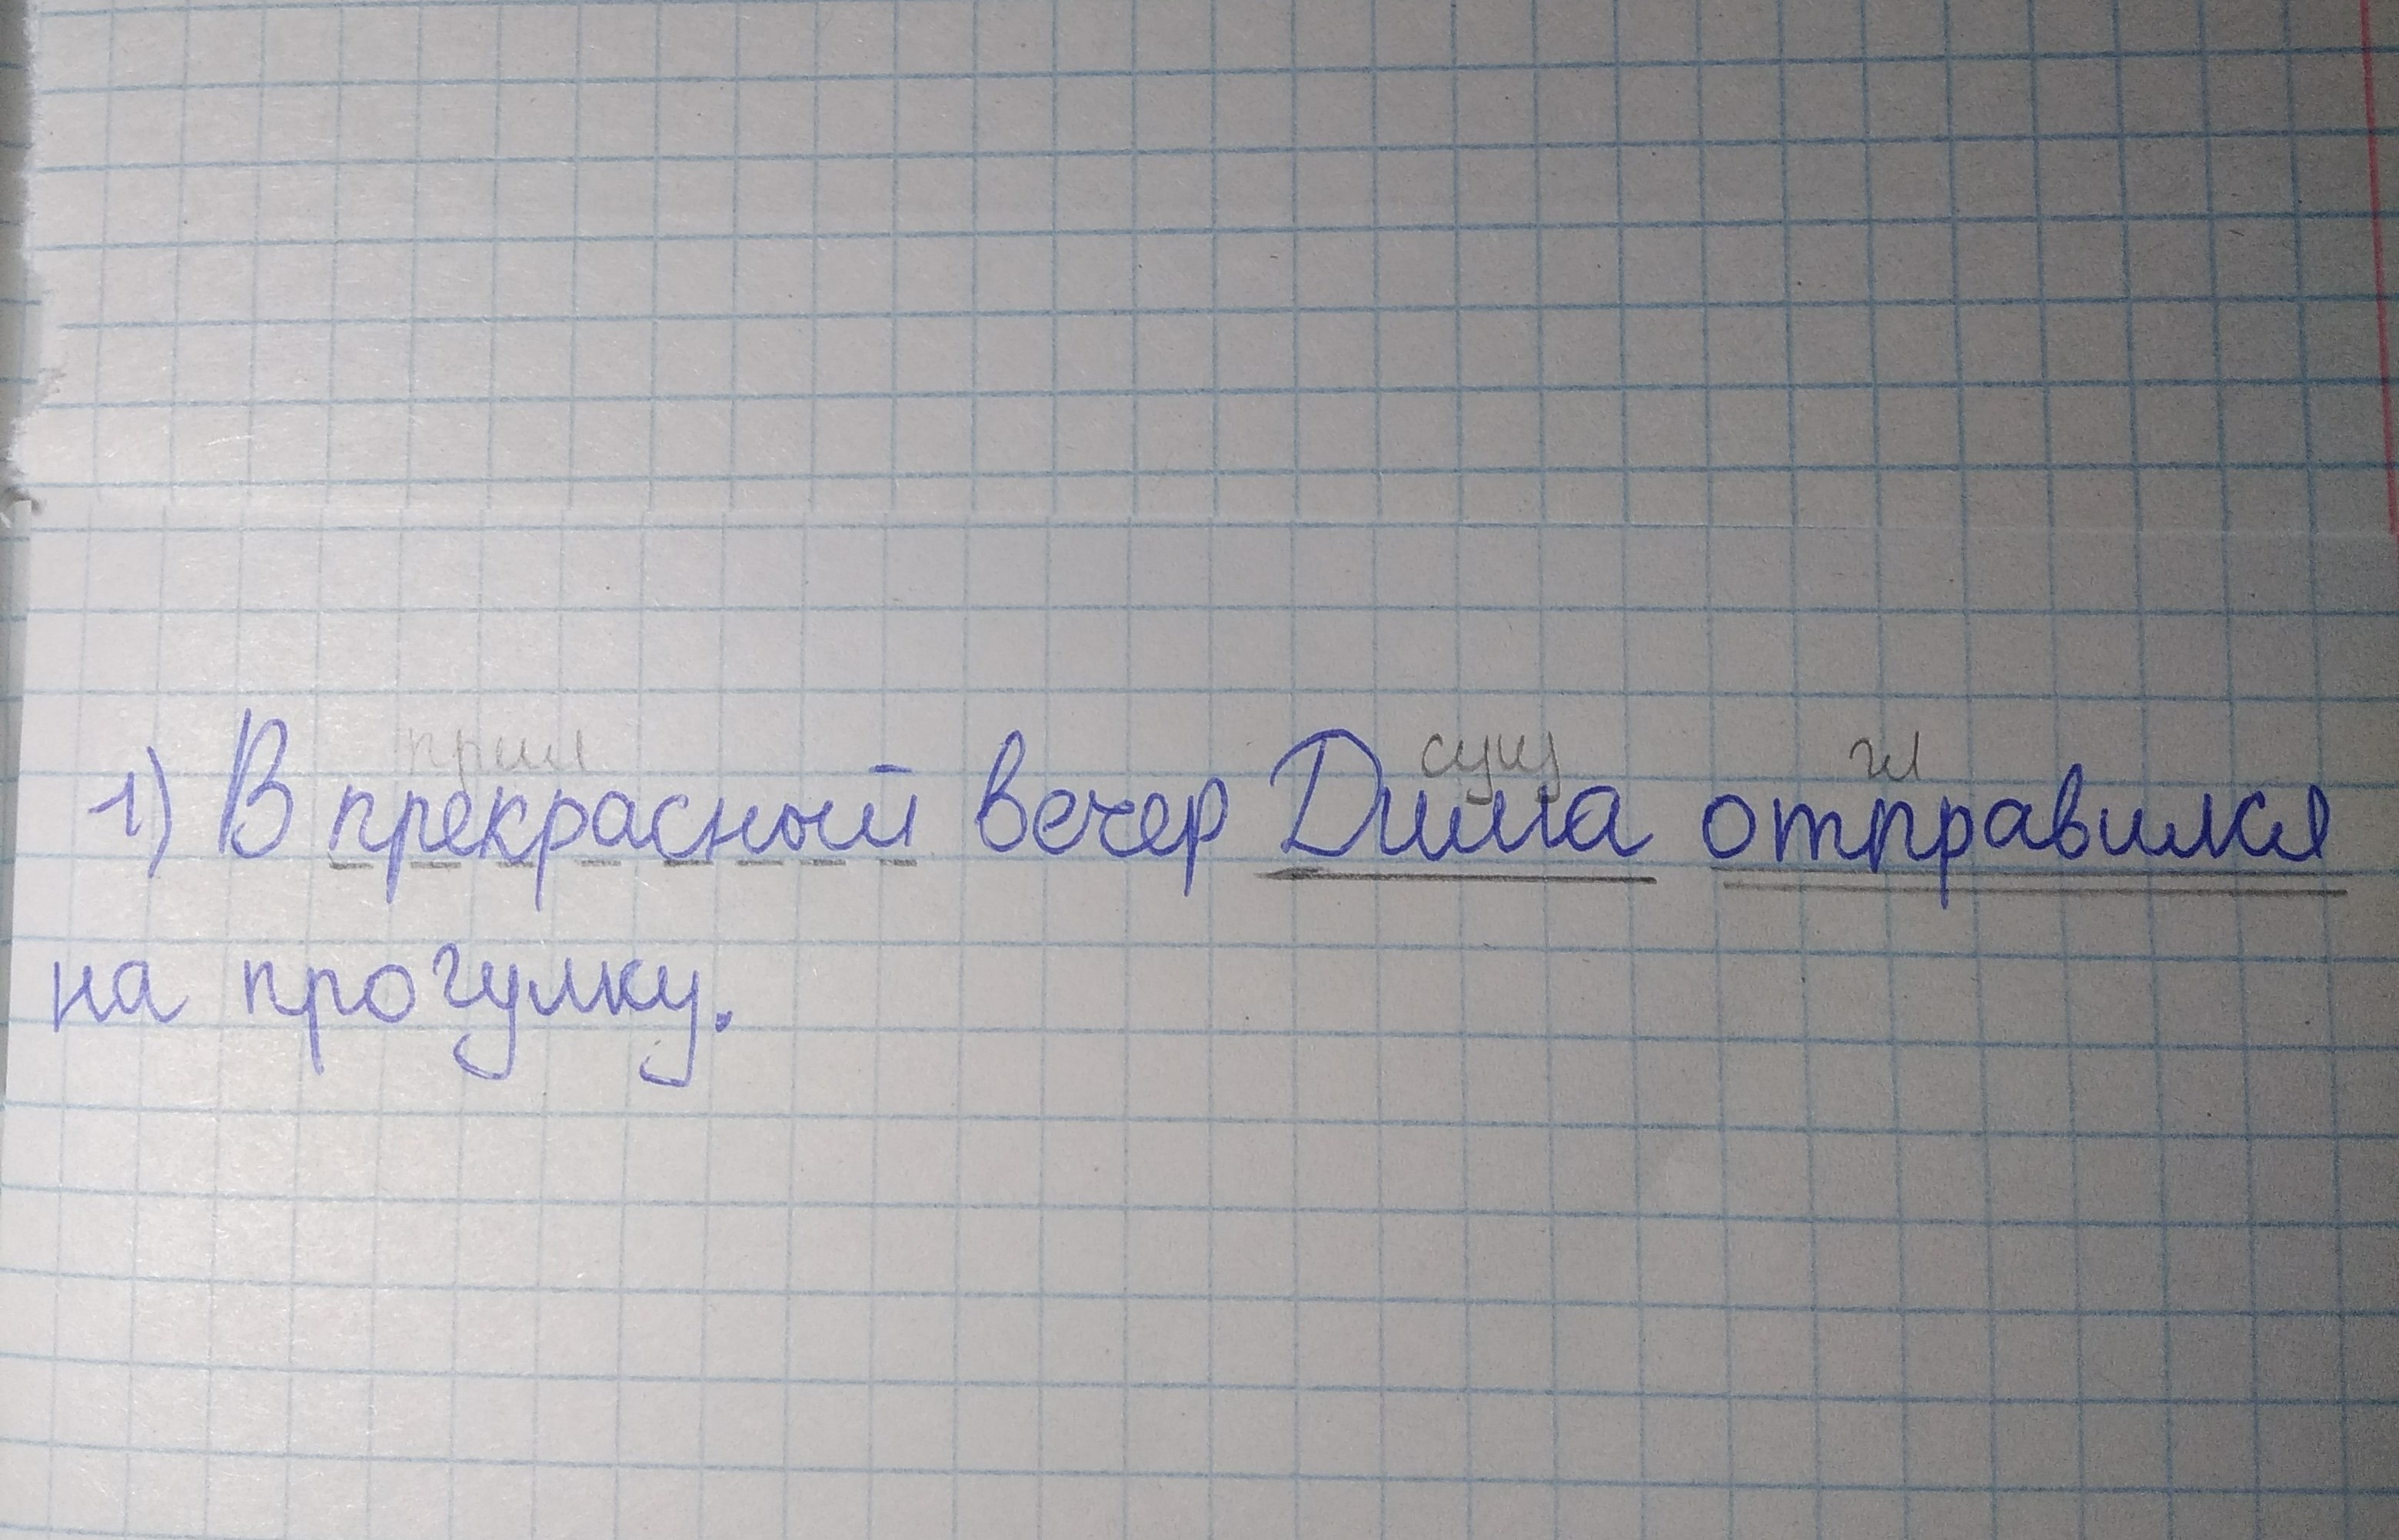 прил сущ гл
1) В прекрасный вечер Дима отправился
на прогулку.